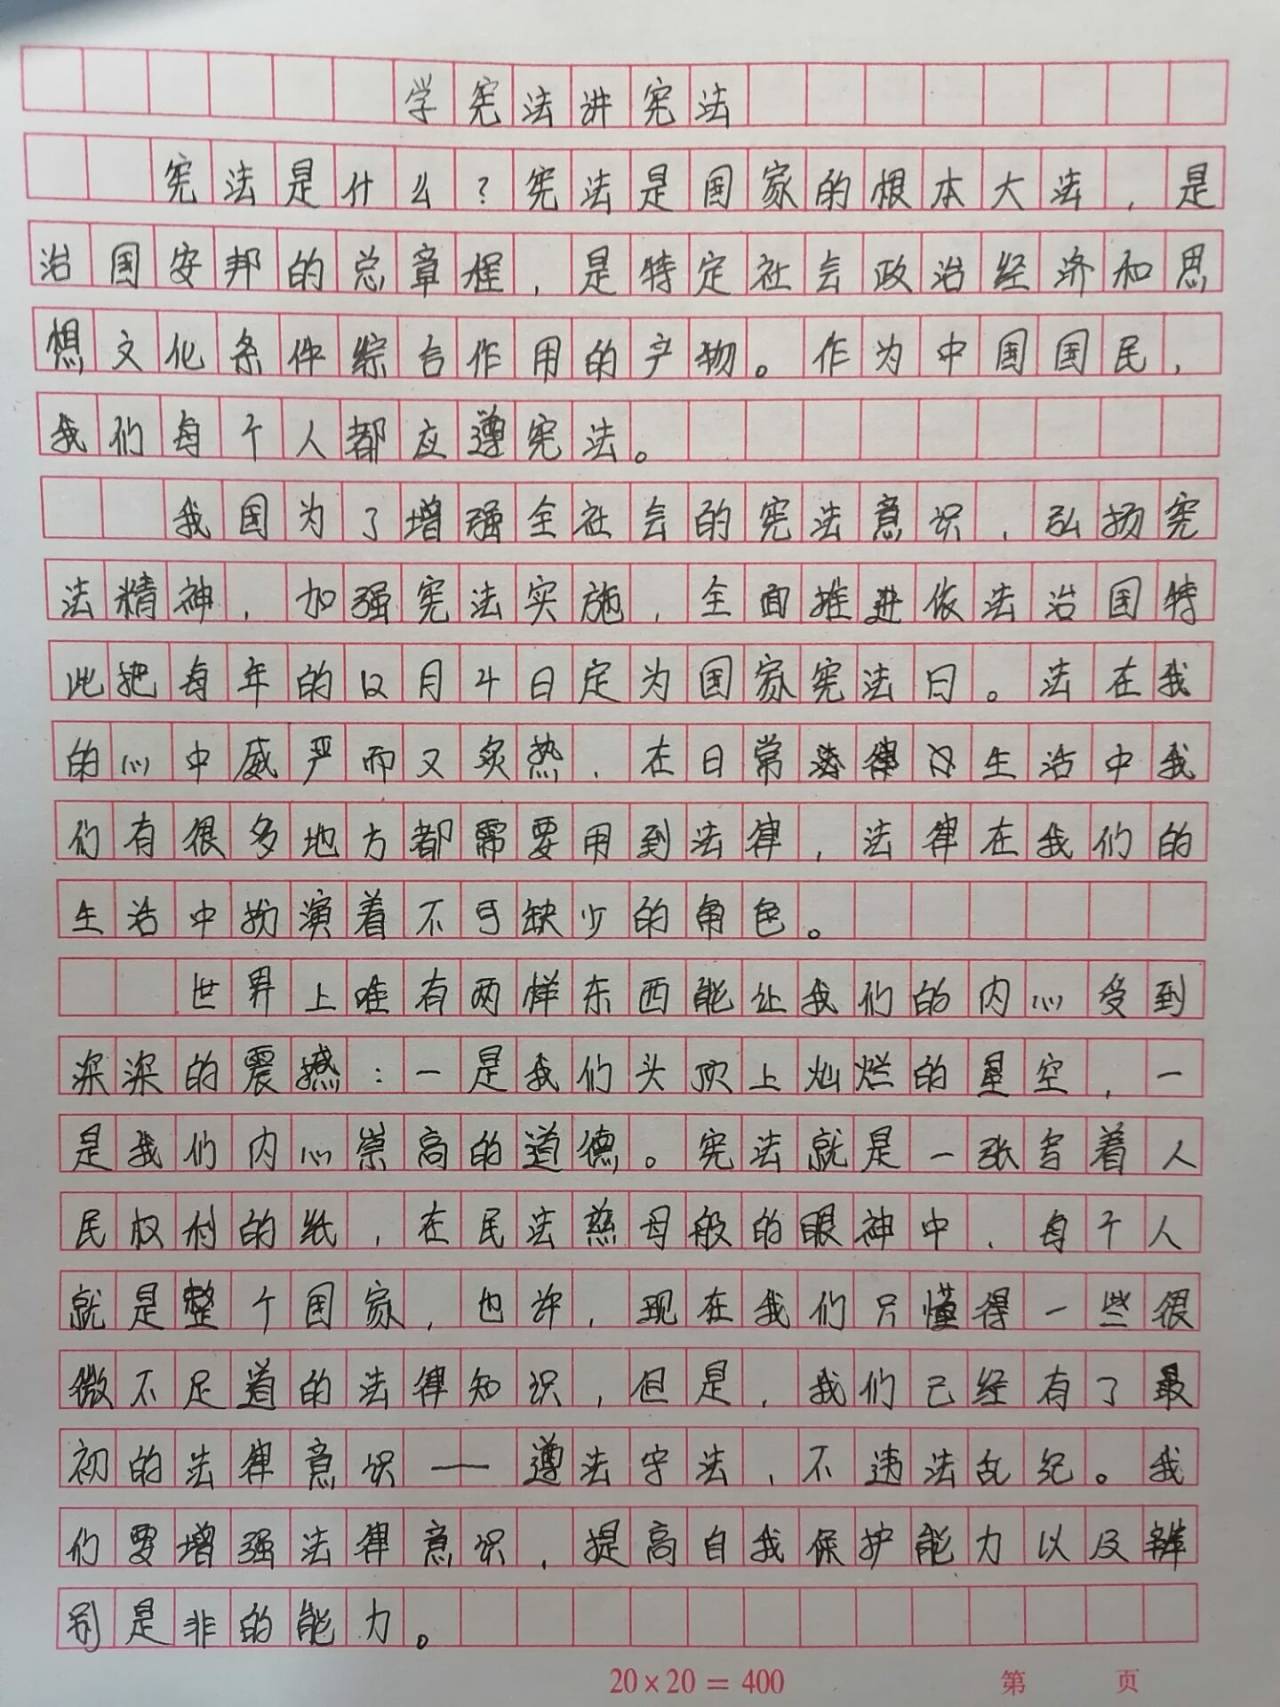 学宪法讲宪法
宪法是什么?宪法是国家的根本大法,是
治国安邦的总章程,是特定社会政治经济和思
想文化条件综合作用的产物。作为中国国民,
我们每个人都应遵宪法。
我国为了增强全社会的宪法意识,弘扬宪
法精神,加强宪法实施,全面推进依法治国特
此把每年的12月4日定为国家宪法日。法在我
的心中威严而又炙热,在日常生活中我
们有很多地方都需要用到法律,法律在我们的
生活中扮演着不可缺少的角色。
世界上唯有两样东西能让我们的内心受到
深深的震撼:一是我们头顶上灿烂的星空,一
是我们内心崇高的道德。宪法就是一张写着人
民权利的纸,在民法慈母般的眼神中,每个人
就是整个国家,也许,现在我们只懂得一些很
微不足道的法律知识,但是,我们已经有了最
初的法律意识——遵法守法,不违法乱纪。我
们要增强法律意识,提高自我保护能力以及辨
别是非的能力。
20×20=400
第 页